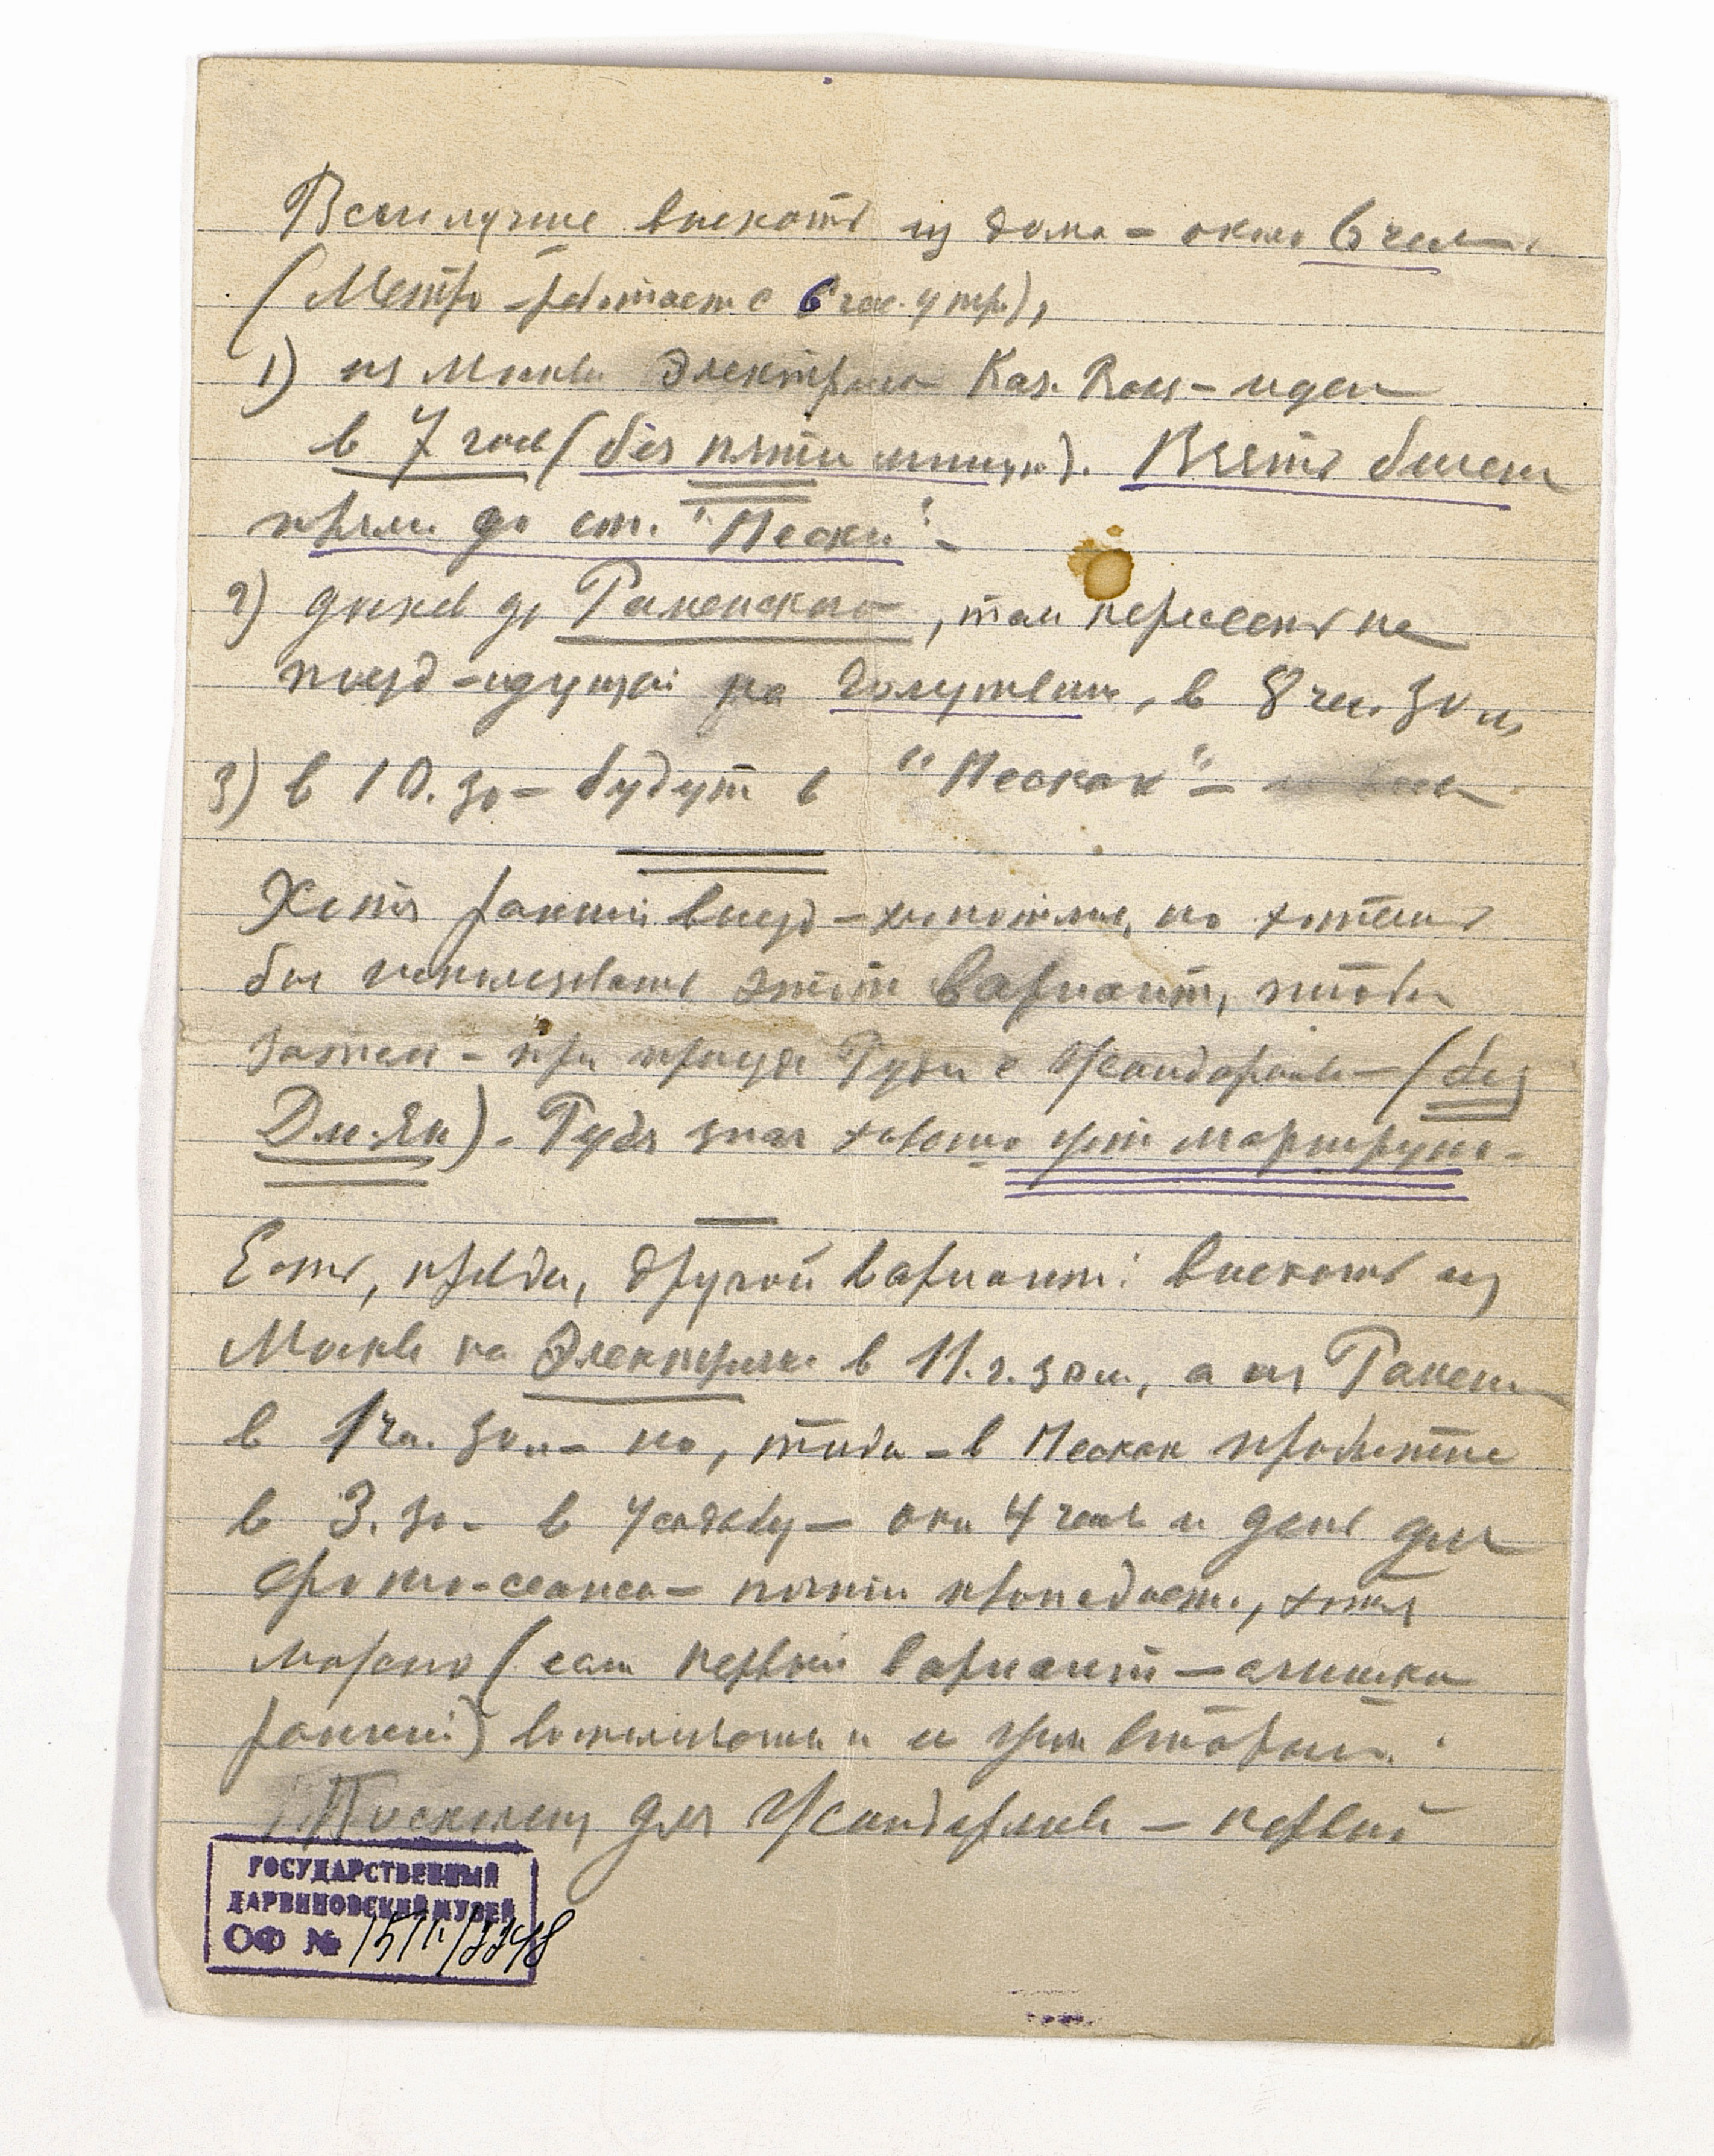 Всего лучше выехать из дома – около 6 час.
(Метро – работает с 6 час. утр.),
1) из Москвы Электричка Каз. Вокз – идет
в 7 час (без пяти минут). Взять билет
прямо до ст. "Пески" –
2) доехав до Раменского, там пересесть на
поезд – идущий на Голутвин, в 8 час. 30 м,
3) в 10.30 – будут в "Песках" –
Хотя ранний выезд – но хотелось
бы использовать этот вариант, чтобы
затем – при приезде Руди с (без
Дм. Як) – Рудя знал хорошо этот маршрут –
Есть, правда, другой вариант: выехать из
Москвы на Электричке в 11 ч. 30 м., а из Рамен.
в 1 ча. 30 м – но, тогда – в Песках
в 3.30 – в Усадьбу – ок. 4 час и день для
фото-сеанса – почти пропадает, хотя
можно (если первый вариант – слишком
ранний) и этим вторым.
Поскольку для – первый
ГОСУДАРСТВЕННЫЙ
ДАРВИНОВСКИЙ МУЗЕЙ
ОФ №